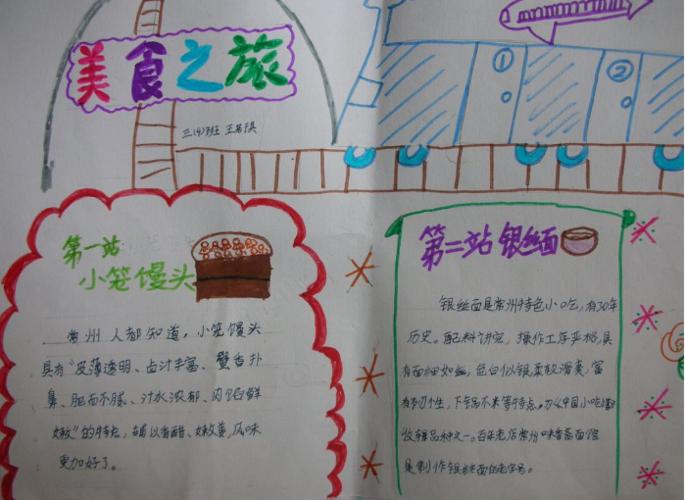 美食之旅
三(4)班 王
①
②
第一站
小笼馒头
常州人都知道，小笼馒头
具有“皮薄透明、卤汁丰富、蟹香扑
鼻、肥而不腻、汁水浓郁、肉馅鲜
嫩”的特点，辅以香醋、嫩姜，风味
更加好了。
第二站 银丝面
银丝面是常州特色小吃，有30年
历史。配料讲究，操作工序严格，具
有面细如丝，色白似银，柔软滑爽，富
下锅不 等特点。中国小吃
品种之一。百年老店常州味香斋面馆
是制作银丝面的老字号。